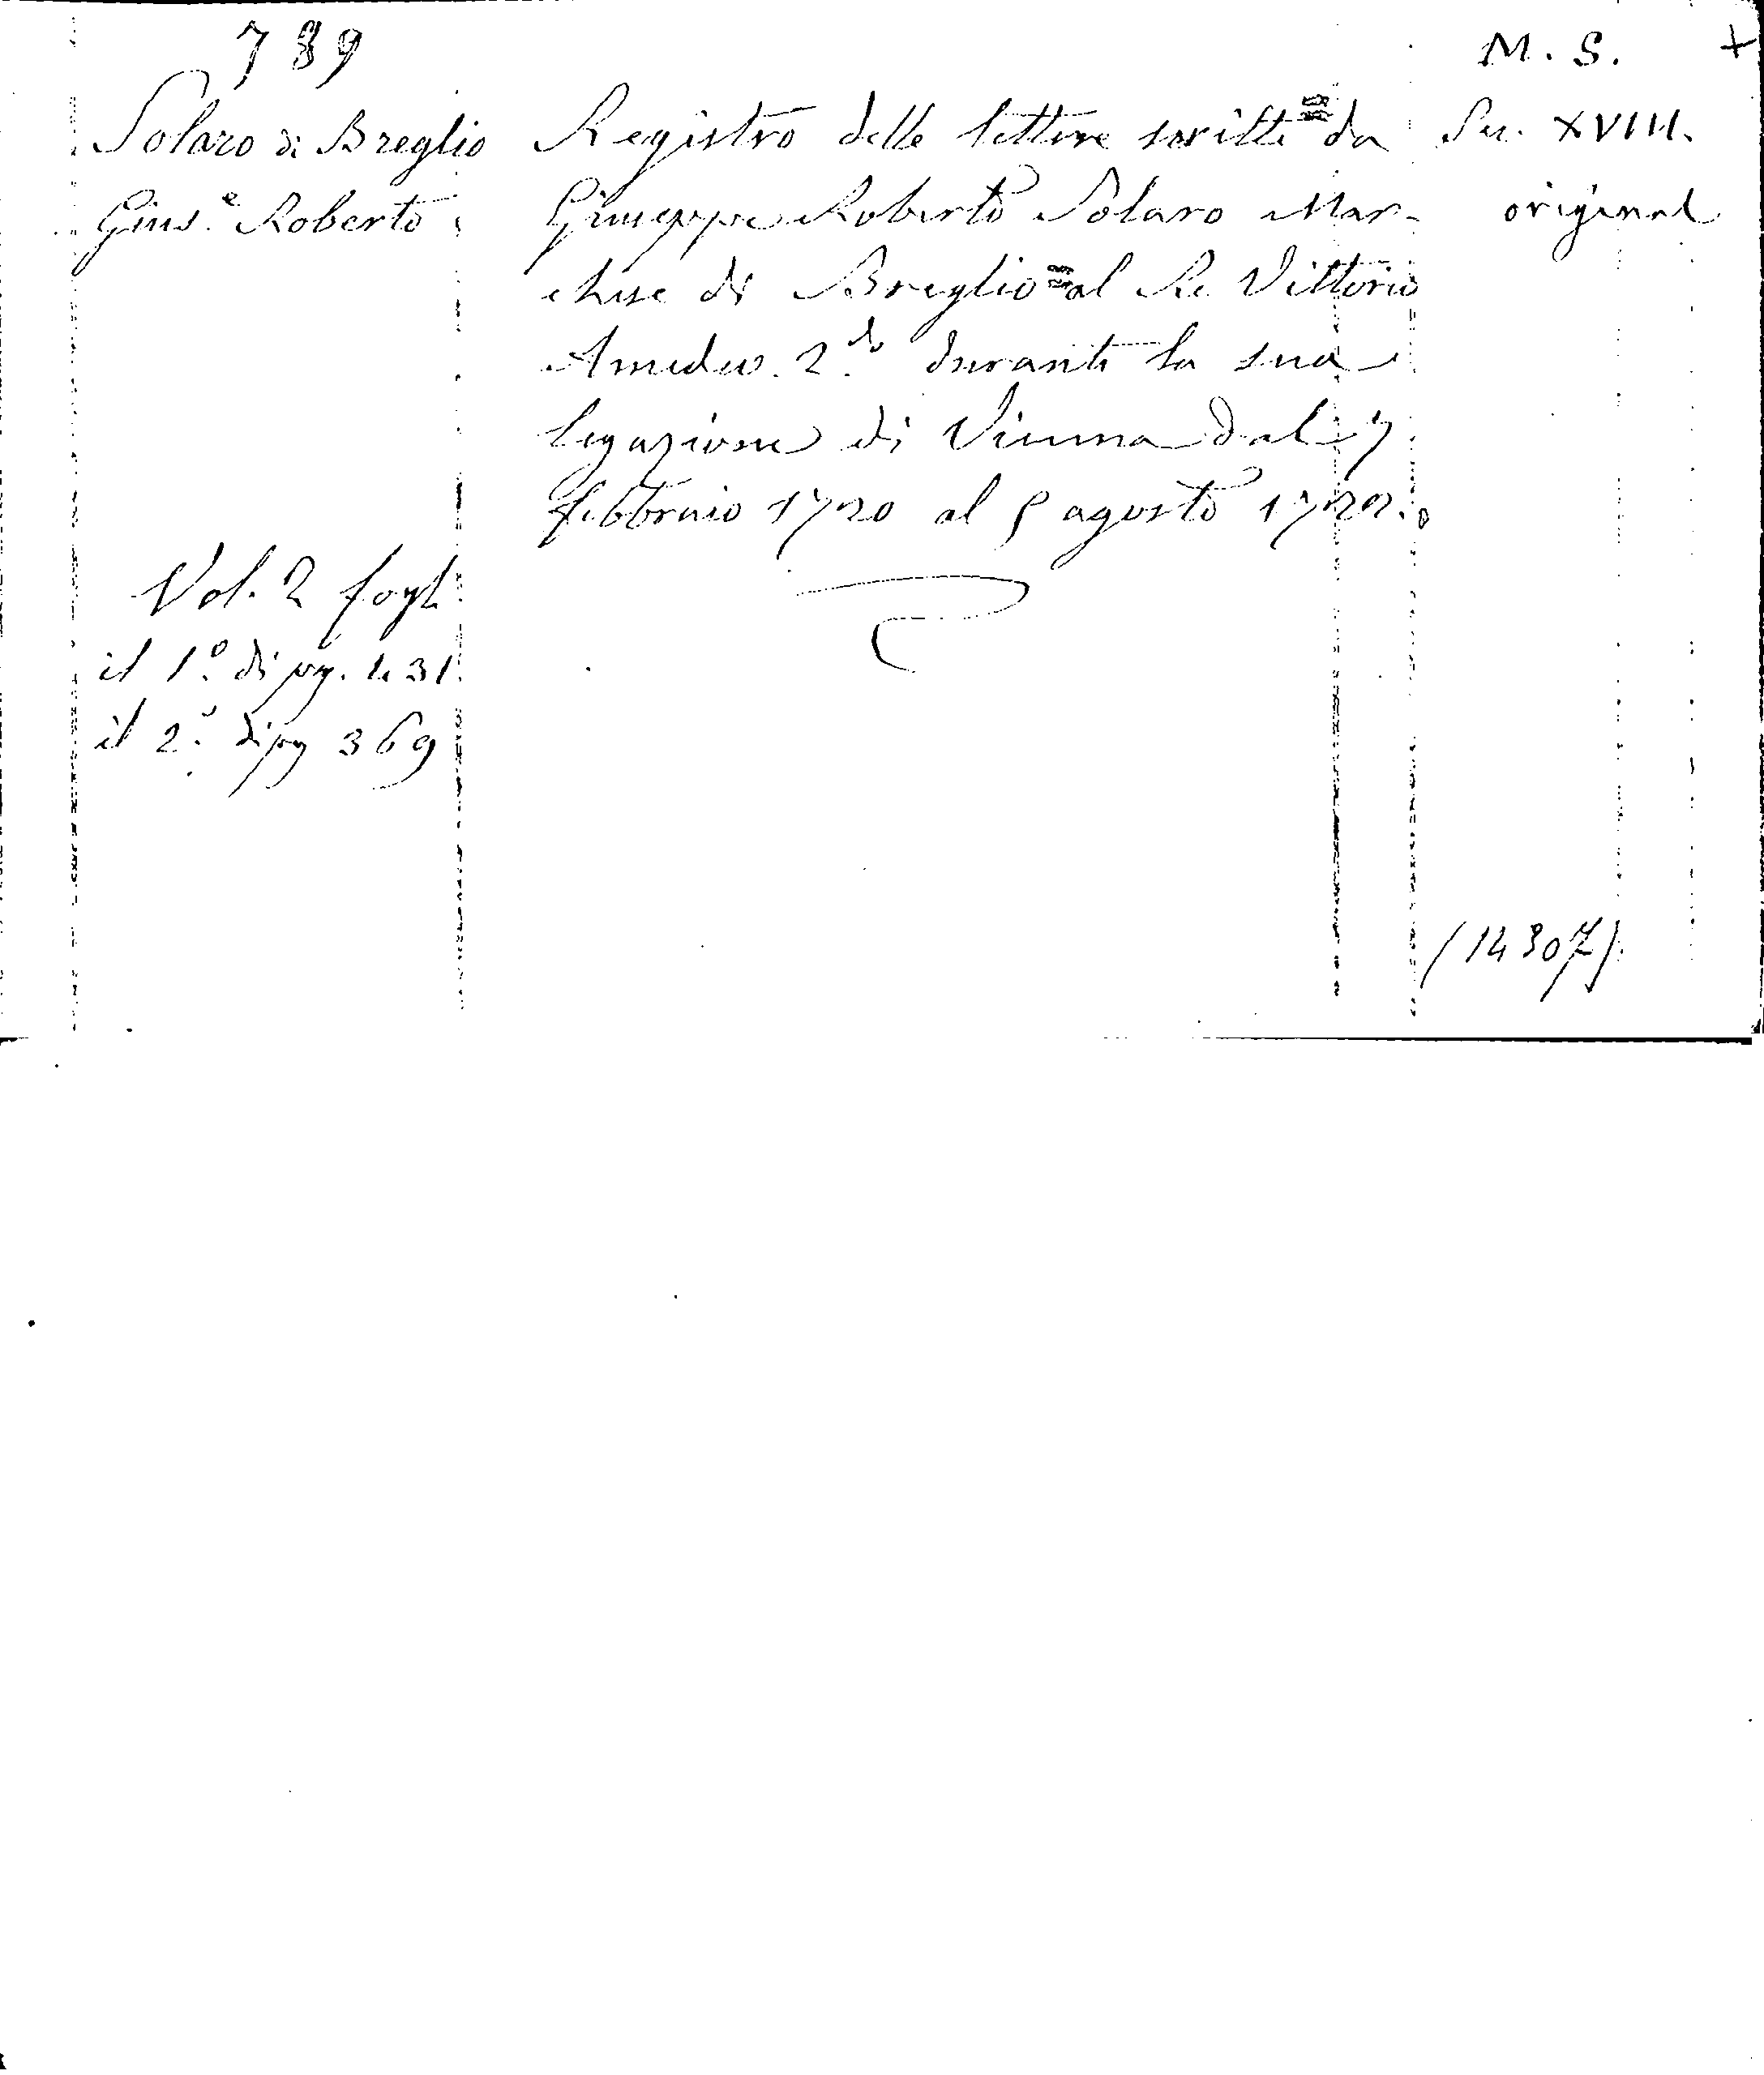 789
M. S. +
Solaro di Breglio
Gius.e Roberto
Registro delle lettere scritte da
Giuseppe Roberto Solaro Mar-
chese di Breglio al Re Vittorio
Amedeo 2.do durante la sua
legazione di Vienna dal 7
febbraio 1720 al 5 agosto 1722.
Sec. XVIII.
original
Vol. 2 fogl.
il 1.o di pag. 431
il 2.o di pag 369
(14307)